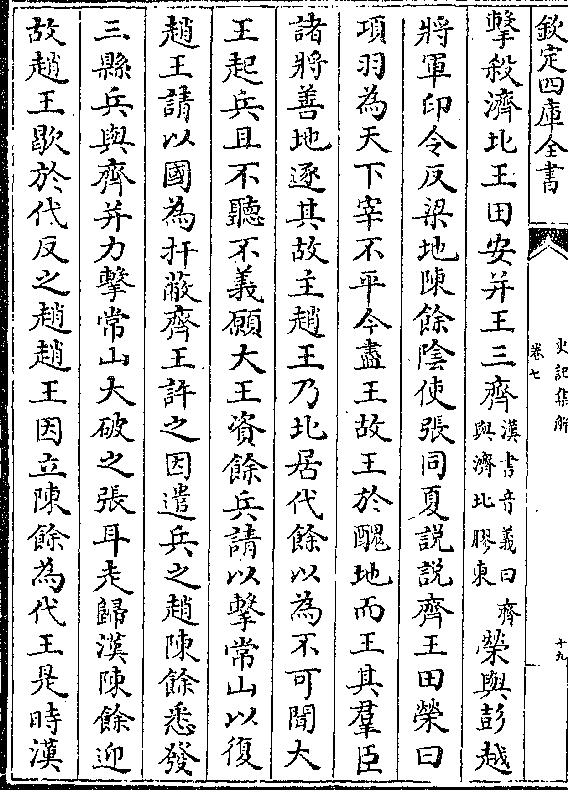 欽定四庫全書
史記集解
卷七
十九
擊殺濟北王田安并王三齊漢書音義曰齊與濟北膠東榮與彭越
將軍印令反梁地陳餘陰使張同夏説説齊王田榮曰
項羽為天下宰不平今盡王故王於醜地而王其羣臣
諸將善地逐其故主趙王乃北居代餘以為不可聞大
王起兵且不聽不義願大王資餘兵請以擊常山以復
趙王請以國為扞蔽齊王許之因遣兵之趙陳餘悉發
三縣兵與齊并力擊常山大破之張耳走歸漢陳餘迎
故趙王歇於代反之趙趙王因立陳餘為代王是時漢